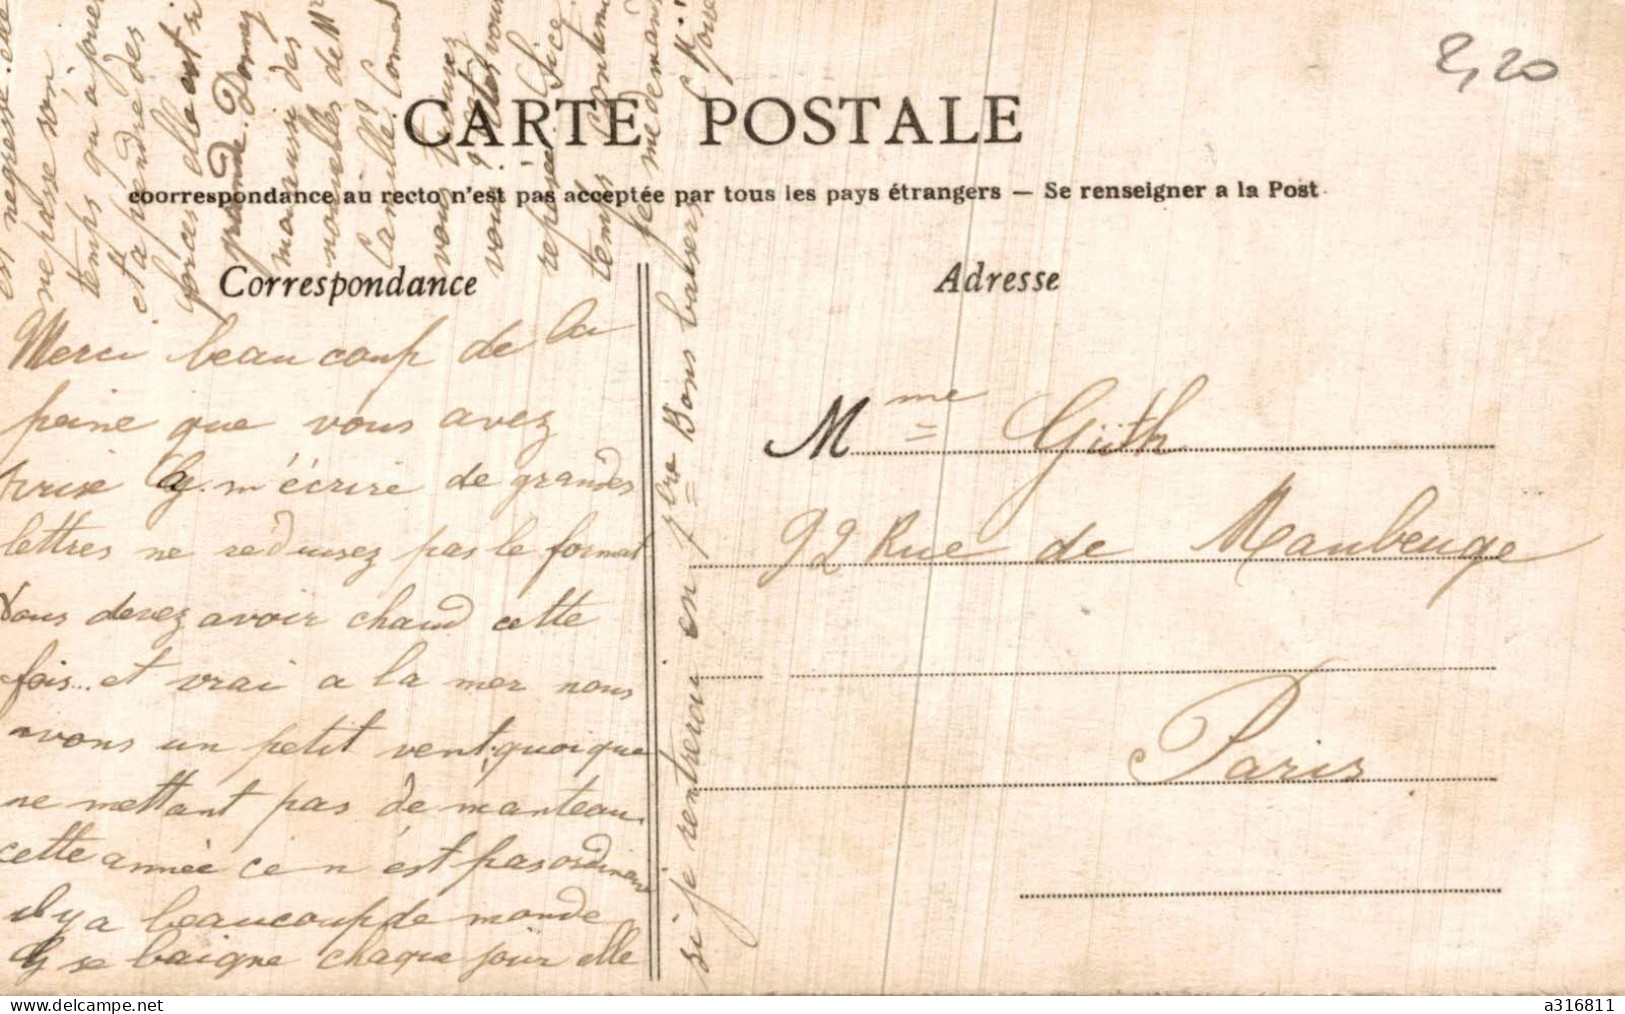 2,20
CARTE POSTALE
coorrespondance au recto n'est pas acceptée par tous les pays étrangers — Se renseigner a la Post
Correspondance
Adresse
Merci beaucoup de la
peine que vous avez
prise m'écrire de grandes
lettres ne reduisez pas le format
Vous devez avoir chaud cette
fois... et vrai a la mer nous
avons un petit vent, quoique
ne mettant pas de manteau
cette année ce n'est pas ordinaire
il y a beaucoup de monde
se baigne chaque jour elle
est negresse. elle
ne passe son
temps qu'a jouer
et a pendre des
forces elle est
grande. Donnez
moi aussi des
nouvelles de Mr
Camille
vous
vous
reposée
temps
je me demande
si je rentrerai en 7bre = Bons baisers
Mme Güth
92 Rue de Maubeuge
Paris
www.delcampe.net
a316811